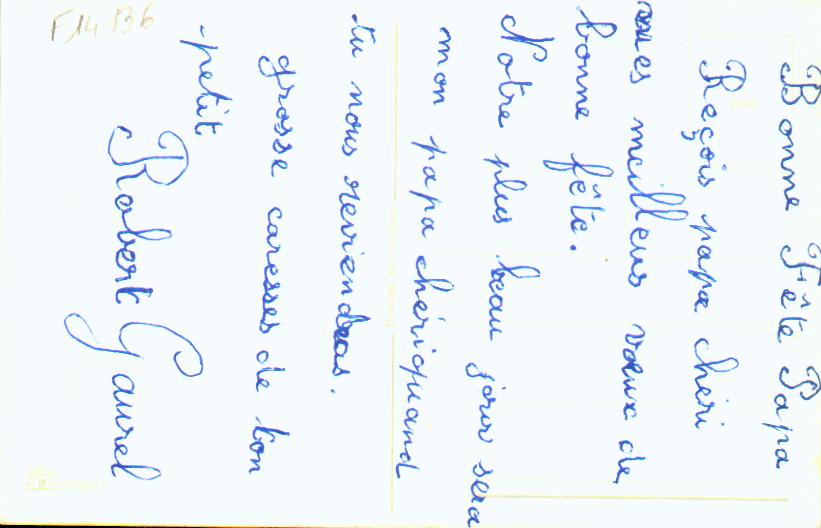 Bonne Fête Papa
Reçois papa cheri
mes meilleus vœux de
bonne fête.
Notre plus beau jour sera
mon papa chéri quand
tu nous reviendras.
grosse caresses de ton
petit
Robert Gaurel
F14-136